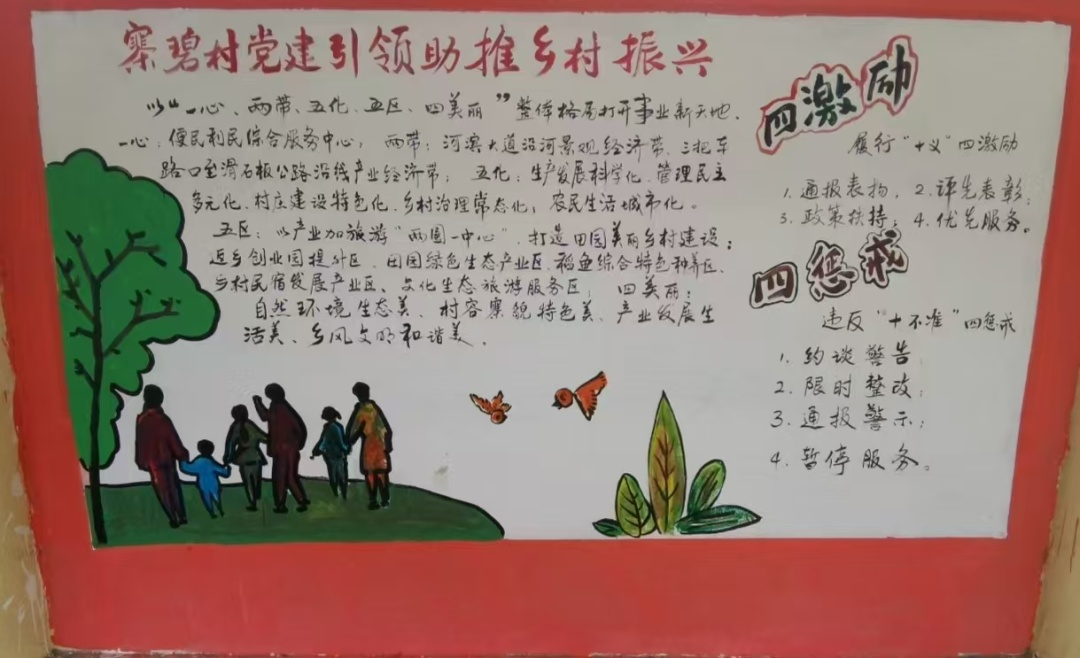 寨碧村党建引领助推乡村振兴
以“一心、两带、五化、五区、四美丽”整体格局打开事业新天地.
一心:便民利民综合服务中心; 两带:河滨大道沿河景观经济带、三把车
路口至滑石板公路沿线产业经济带; 五化:生产发展科学化、管理民主
多元化、村庄建设特色化、乡村治理常态化; 农民生活城市化。
五区:以产业加旅游“两园一中心”.打造田园美丽乡村建设;
返乡创业园提升区、田园绿色生态产业区、稻鱼综合特色种养区、
乡村民宿发展产业区、文化生态旅游服务区; 四美丽:
自然环境生态美、村容寨貌特色美、产业发展生
活美、乡风文明和谐美.
四激励
履行“十义”四激励
1.通报表扬, 2.评先表彰;
3.政策扶持; 4.优先服务。
四惩戒
违反“十不准”四惩戒
1.约谈警告;
2.限时整改;
3.通报警示;
4.暂停服务。